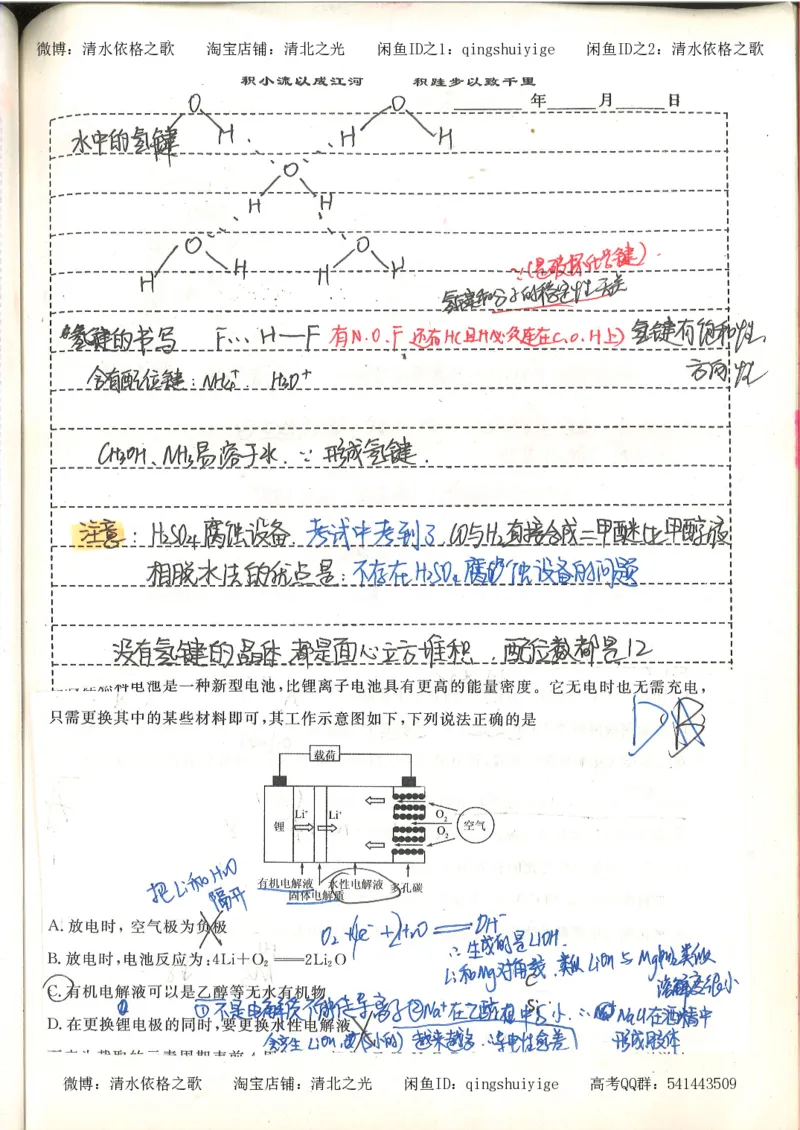 微博：清水依格之歌 淘宝店铺：清北之光 闲鱼ID之1：qingshuiyige 闲鱼ID之2：清水依格之歌
积小流以成江河 积跬步以致千里
年 月 日
水中的氢键
O H H O H
O
H H
O H O H
H H
∵(是破坏化学键).
氢键和分子的稳定性无关
氢键的书写 F… H—F 有N.O.F 还有HC(且H必须连在C.O.H上) 氢键有饱和性、
方向性
含有配位键：NH₄⁺. H₃O⁺
CH₃OH、NH₃易溶于水.∵形成氢键.
注意：H₂SO₄腐蚀设备.考试中考到了.CO与H₂直接合成二甲醚比甲醇液
相脱水法的优点是：不存在H₂SO₄腐蚀设备的问题
没有氢键的晶体.都是面心立方堆积.配位数都是12
燃料电池是一种新型电池,比锂离子电池具有更高的能量密度。它无电时也无需充电,
只需更换其中的某些材料即可,其工作示意图如下,下列说法正确的是
D
载荷
锂 Li⁺ Li⁺ O₂ O₂ 空气
有机电解液 水性电解液 多孔碳
固体电解质
把Li和H₂O
隔开
A. 放电时，空气极为负极
O₂+4e⁻+2H₂O=OH⁻
∵生成的是LiOH.
B. 放电时,电池反应为:4Li+O₂══2Li₂O
Li和Mg对角线.类似LiOH与Mg类似
溶解度很小
C. 有机电解液可以是乙醇等无水有机物
①不是电解质不能传导离子②Na⁺在乙醇中S小.∴NaCl在酒精中
形成胶体
D. 在更换锂电极的同时,要更换水性电解液
会产生LiOH,(S小的)越来越多.导电性愈差
微博：清水依格之歌 淘宝店铺：清北之光 闲鱼ID：qingshuiyige 高考QQ群：541443509